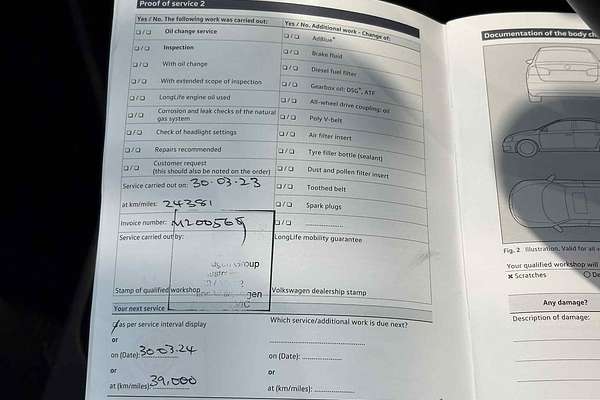 Proof of service 2
Yes / No. The following work was carried out:
❏/❏ Oil change service
❏/❏ Inspection
❏/❏ With oil change
❏/❏ With extended scope of inspection
❏/❏ LongLife engine oil used
❏/❏ Corrosion and leak checks of the natural
gas system
❏/❏ Check of headlight settings
❏/❏ Repairs recommended
❏/❏ Customer request
(this should also be noted on the order)
Service carried out on: 30.03.23
at km/miles: 24381
Invoice number: M200568
Service carried out by:
Group
Stamp of qualified workshop
Yes / No. Additional work - Change of:
❏/❏ AdBlue®
❏/❏ Brake fluid
❏/❏ Diesel fuel filter
❏/❏ Gearbox oil: DSG®, ATF
❏/❏ All-wheel drive coupling: oil
❏/❏ Poly V-belt
❏/❏ Air filter insert
❏/❏ Tyre filler bottle (sealant)
❏/❏ Dust and pollen filter insert
❏/❏ Toothed belt
❏/❏ Spark plugs
❏/❏ ................
LongLife mobility guarantee
Volkswagen dealership stamp
Your next service
❏ as per service interval display
or
on (Date): 30.03.24
or
at (km/miles): 39,000
Which service/additional work is due next?
................................
on (Date): ................
or
at (km/miles): ................
Documentation of the body ch
Fig. 2 Illustration. Valid for all
Your qualified workshop will
✖ Scratches ○ De
Any damage?
Description of damage: